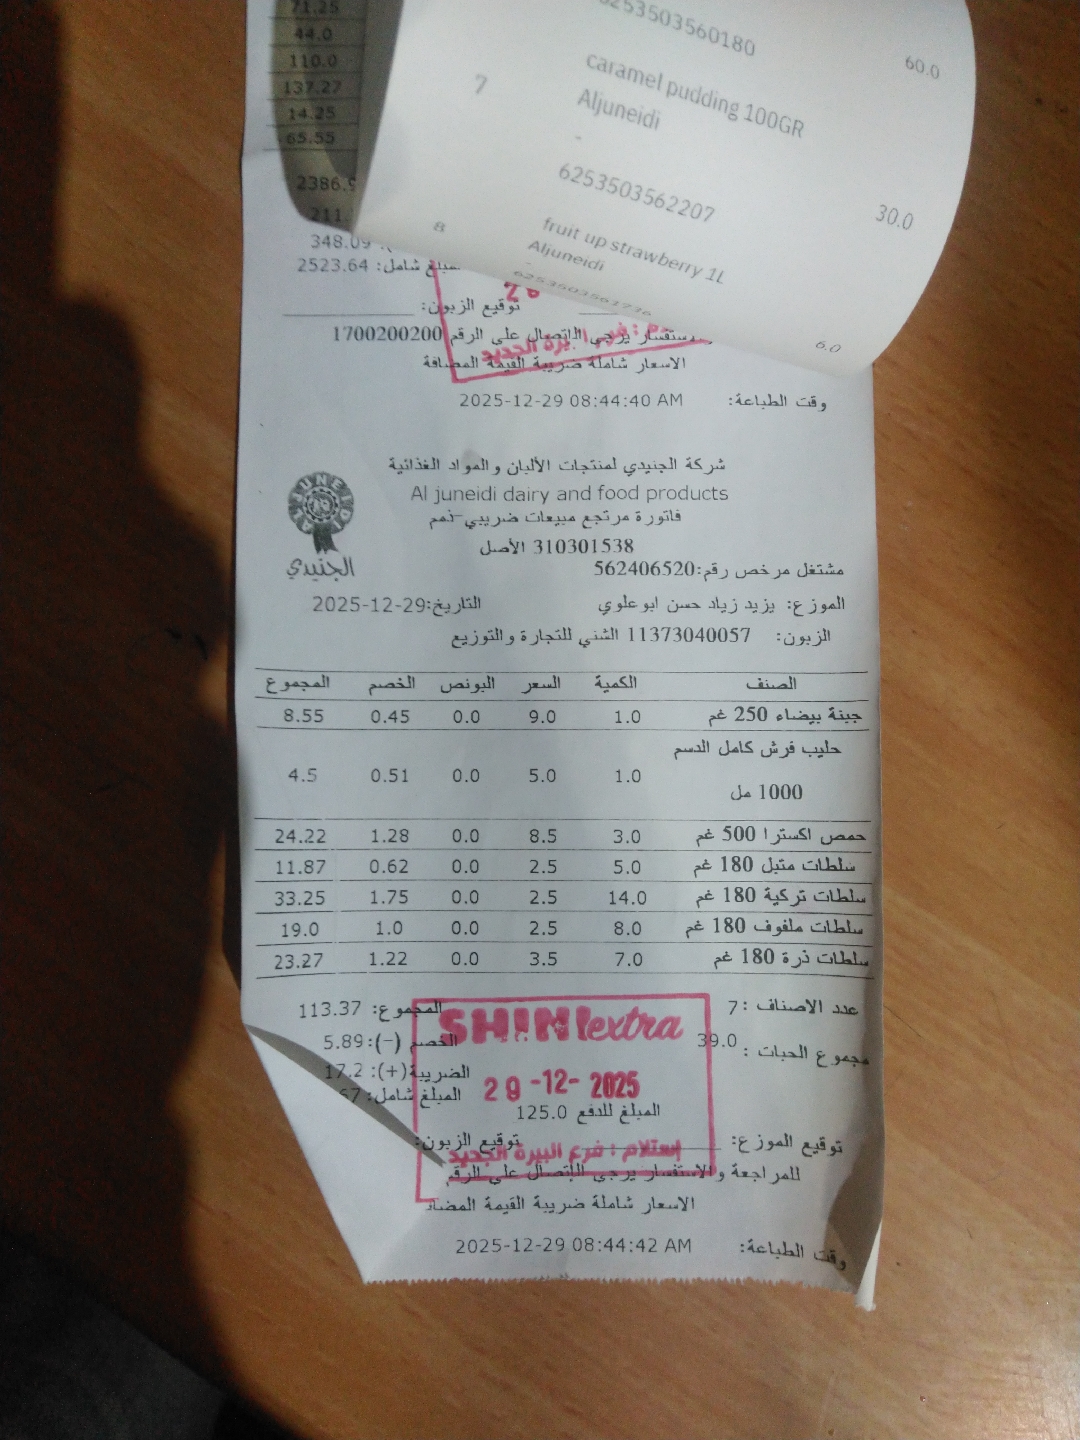 71.25
44.0
110.0
137.27
14.25
65.55
2386.9
211.
348.09
6253503560180
60.0
7 caramel pudding 100GR
Aljuneidi
-
6253503562207
30.0
8 fruit up strawberry 1L
Aljuneidi
-
6.0
مبلغ شامل: 2523.64
توقيع الزبون:
يرجى الإتصال على الرقم 1700200200
الاسعار شاملة ضريبة القيمة المضافة
وقت الطباعة: 2025-12-29 08:44:40 AM
شركة الجنيدي لمنتجات الألبان والمواد الغذائية
Al juneidi dairy and food products
فاتورة مرتجع مبيعات ضريبي-ذمم
310301538 الأصل
AL JUNEIDI
الجنيدي
مشتغل مرخص رقم:562406520
الموزع: يزيد زياد حسن ابو علوي التاريخ:29-12-2025
الزبون: 11373040057 الشني للتجارة والتوزيع
الصنف الكمية السعر البونص الخصم المجموع
جبنة بيضاء 250 غم 1.0 9.0 0.0 0.45 8.55
حليب فرش كامل الدسم
1000 مل 1.0 5.0 0.0 0.51 4.5
حمص اكسترا 500 غم 3.0 8.5 0.0 1.28 24.22
سلطات متبل 180 غم 5.0 2.5 0.0 0.62 11.87
سلطات تركية 180 غم 14.0 2.5 0.0 1.75 33.25
سلطات ملفوف 180 غم 8.0 2.5 0.0 1.0 19.0
سلطات ذرة 180 غم 7.0 3.5 0.0 1.22 23.27
عدد الاصناف : 7 المجموع: 113.37
مجموع الحبات : 39.0 الخصم (-): 5.89
الضريبة(+): 17.2
المبلغ شامل:
SHINI extra
29 -12- 2025
المبلغ للدفع 125.0
توقيع الموزع: توقيع الزبون:
إستلام : فرع البيرة الجديد
للمراجعة والاستفسار يرجى الإتصال على الرقم
الاسعار شاملة ضريبة القيمة المضا
وقت الطباعة: 2025-12-29 08:44:42 AM